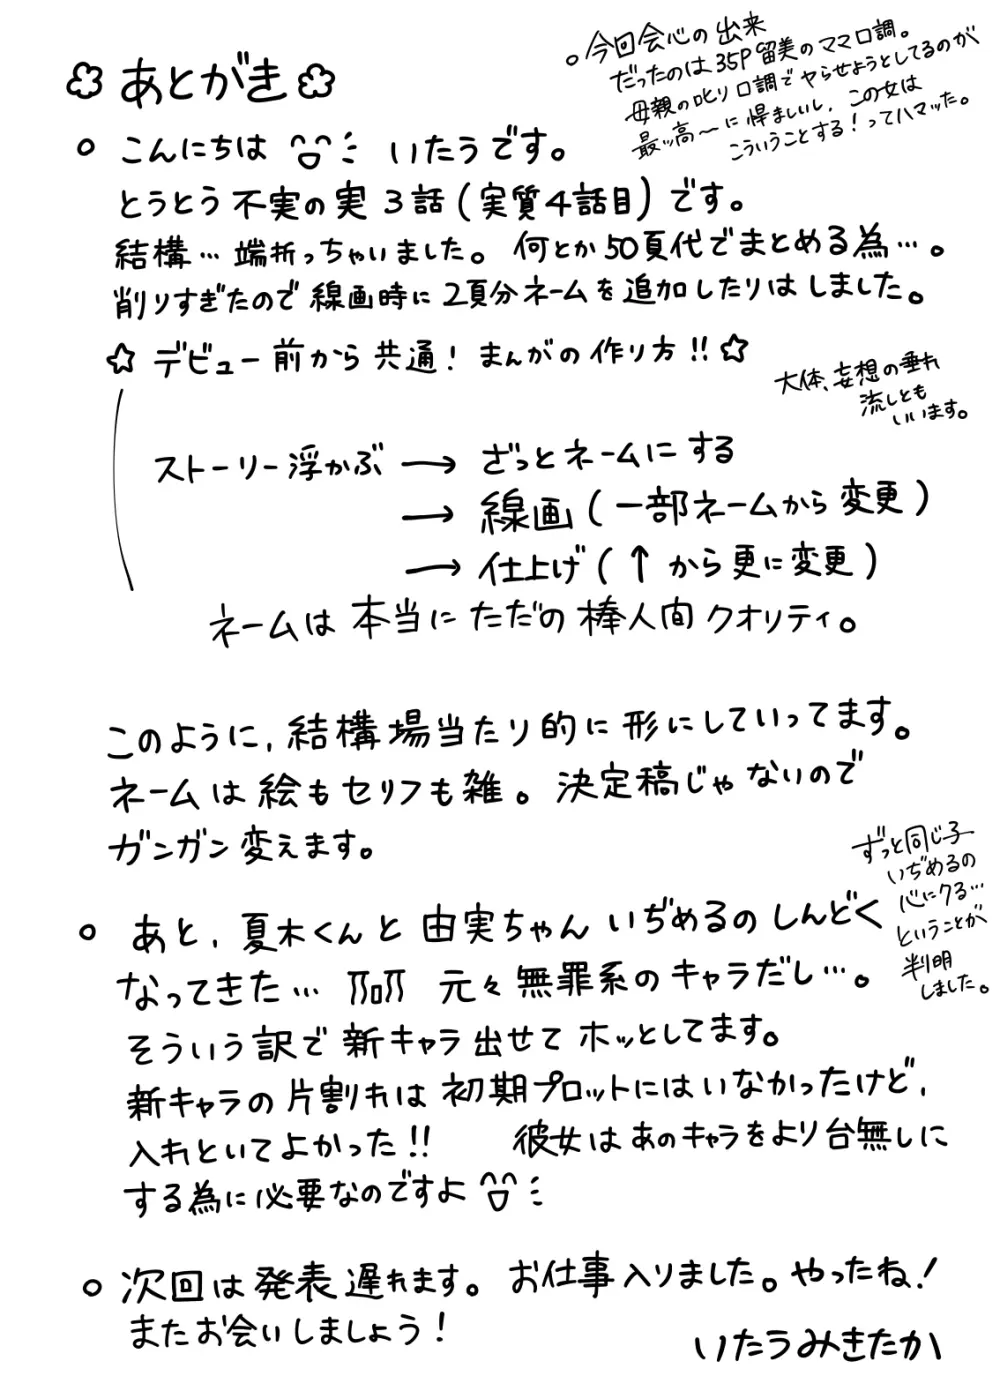 あとがき
○今回会心の出来
だったのは35P留美のママ口調。
母親の叱り口調でヤらせようとしてるのが
最ッ高〜に悍ましいし、この女は
こういうことする!ってハマッた。
○ こんにちは いたうです。
とうとう不実の実3話(実質4話目)です。
結構…端折っちゃいました。何とか50頁代でまとめる為…。
削りすぎたので線画時に2頁分ネームを追加したりはしました。
☆デビュー前から共通!まんがの作り方!!☆
大体、妄想の垂れ
流しとも
いいます。
ストーリー浮かぶ → ざっとネームにする
→ 線画(一部ネームから変更)
→ 仕上げ(↑から更に変更)
ネームは本当にただの棒人間クオリティ。
このように、結構場当たり的に形にしていってます。
ネームは絵もセリフも雑。決定稿じゃないので
ガンガン変えます。
○ あと、夏木くんと由実ちゃんいぢめるのしんどく
なってきた… 元々無罪系のキャラだし…。
ずっと同じ子
いぢめるの
心にクる…
ということが
判明
しました。
そういう訳で新キャラ出せてホッとしてます。
新キャラの片割れは初期プロットにはいなかったけど、
入れといてよかった!! 彼女はあのキャラをより台無しに
する為に必要なのですよ
○ 次回は発表遅れます。お仕事入りました。やったね!
またお会いしましょう!
いたうみきたか